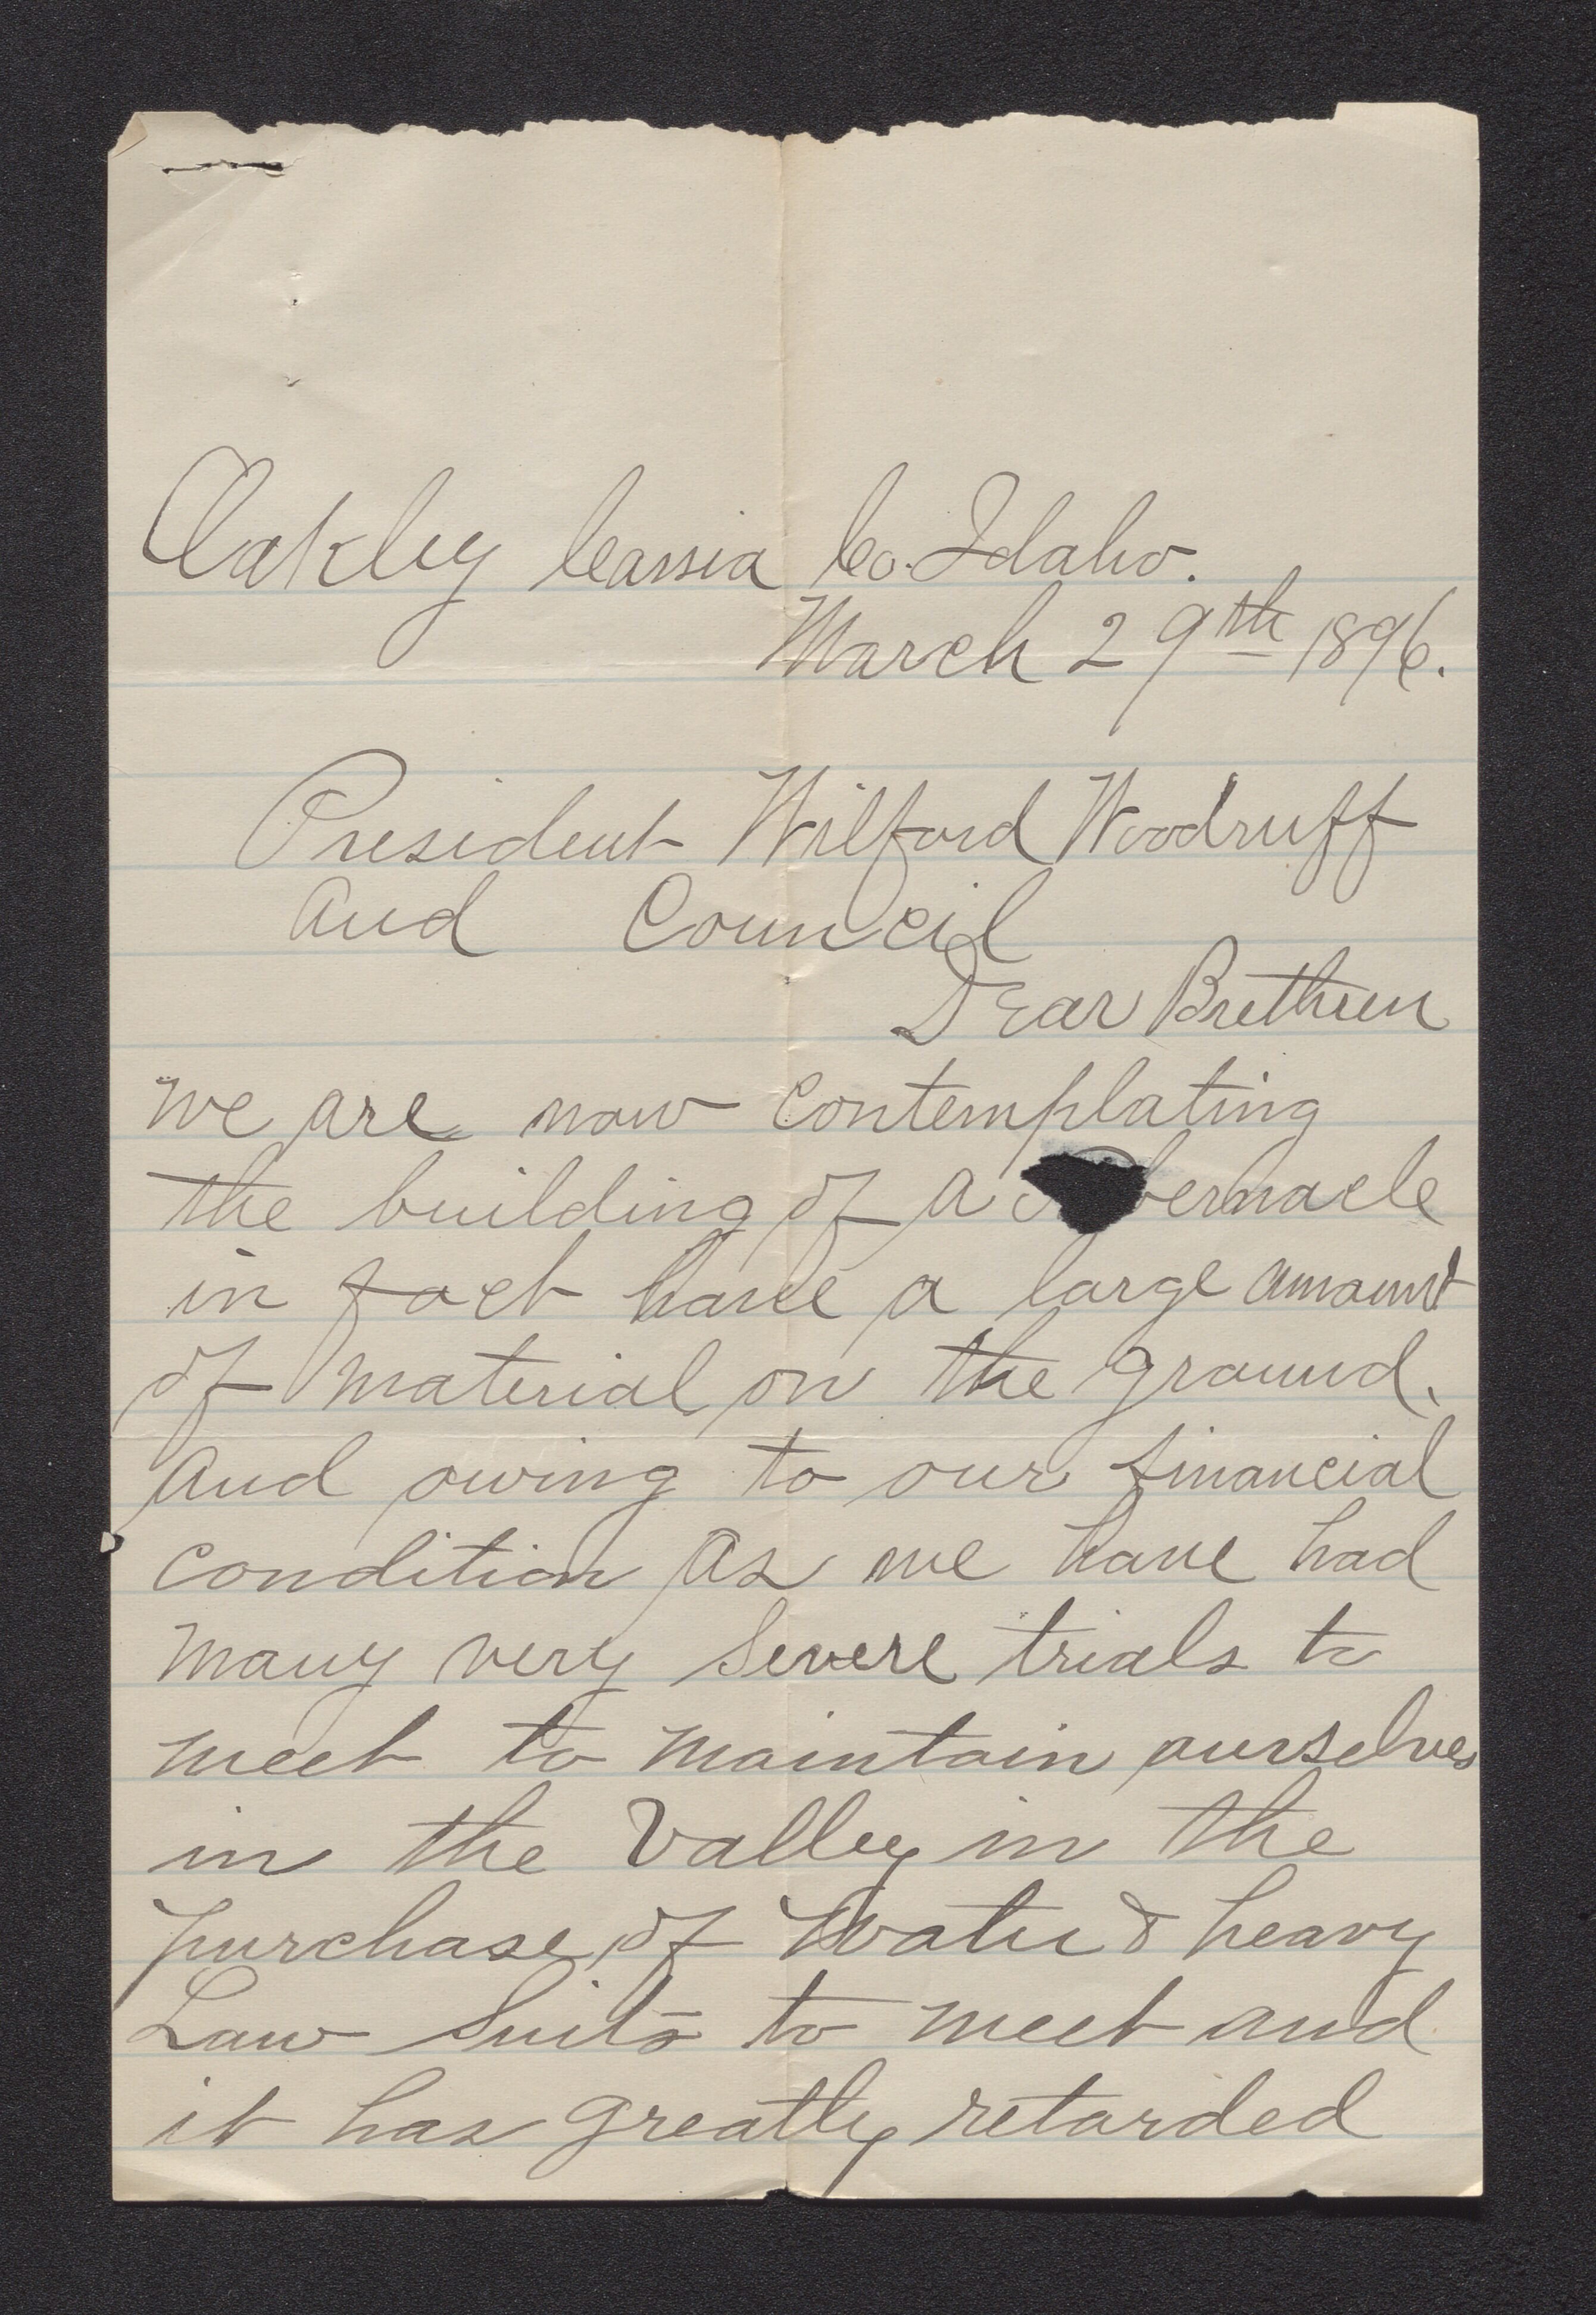 Oakley Cassia Co. Idaho.
March 29th 1896.
President Wilford Woodruff
and Council
Dear Brethren
we are now contemplating
the building of a bernacle
in fact have a large amount
of material on the ground.
and owing to our financial
condition as we have had
many very severe trials to
meet to maintain ourselves
in the Valley in the
purchase of Water & heavy
Law Suits to meet and
it has greatly retarded